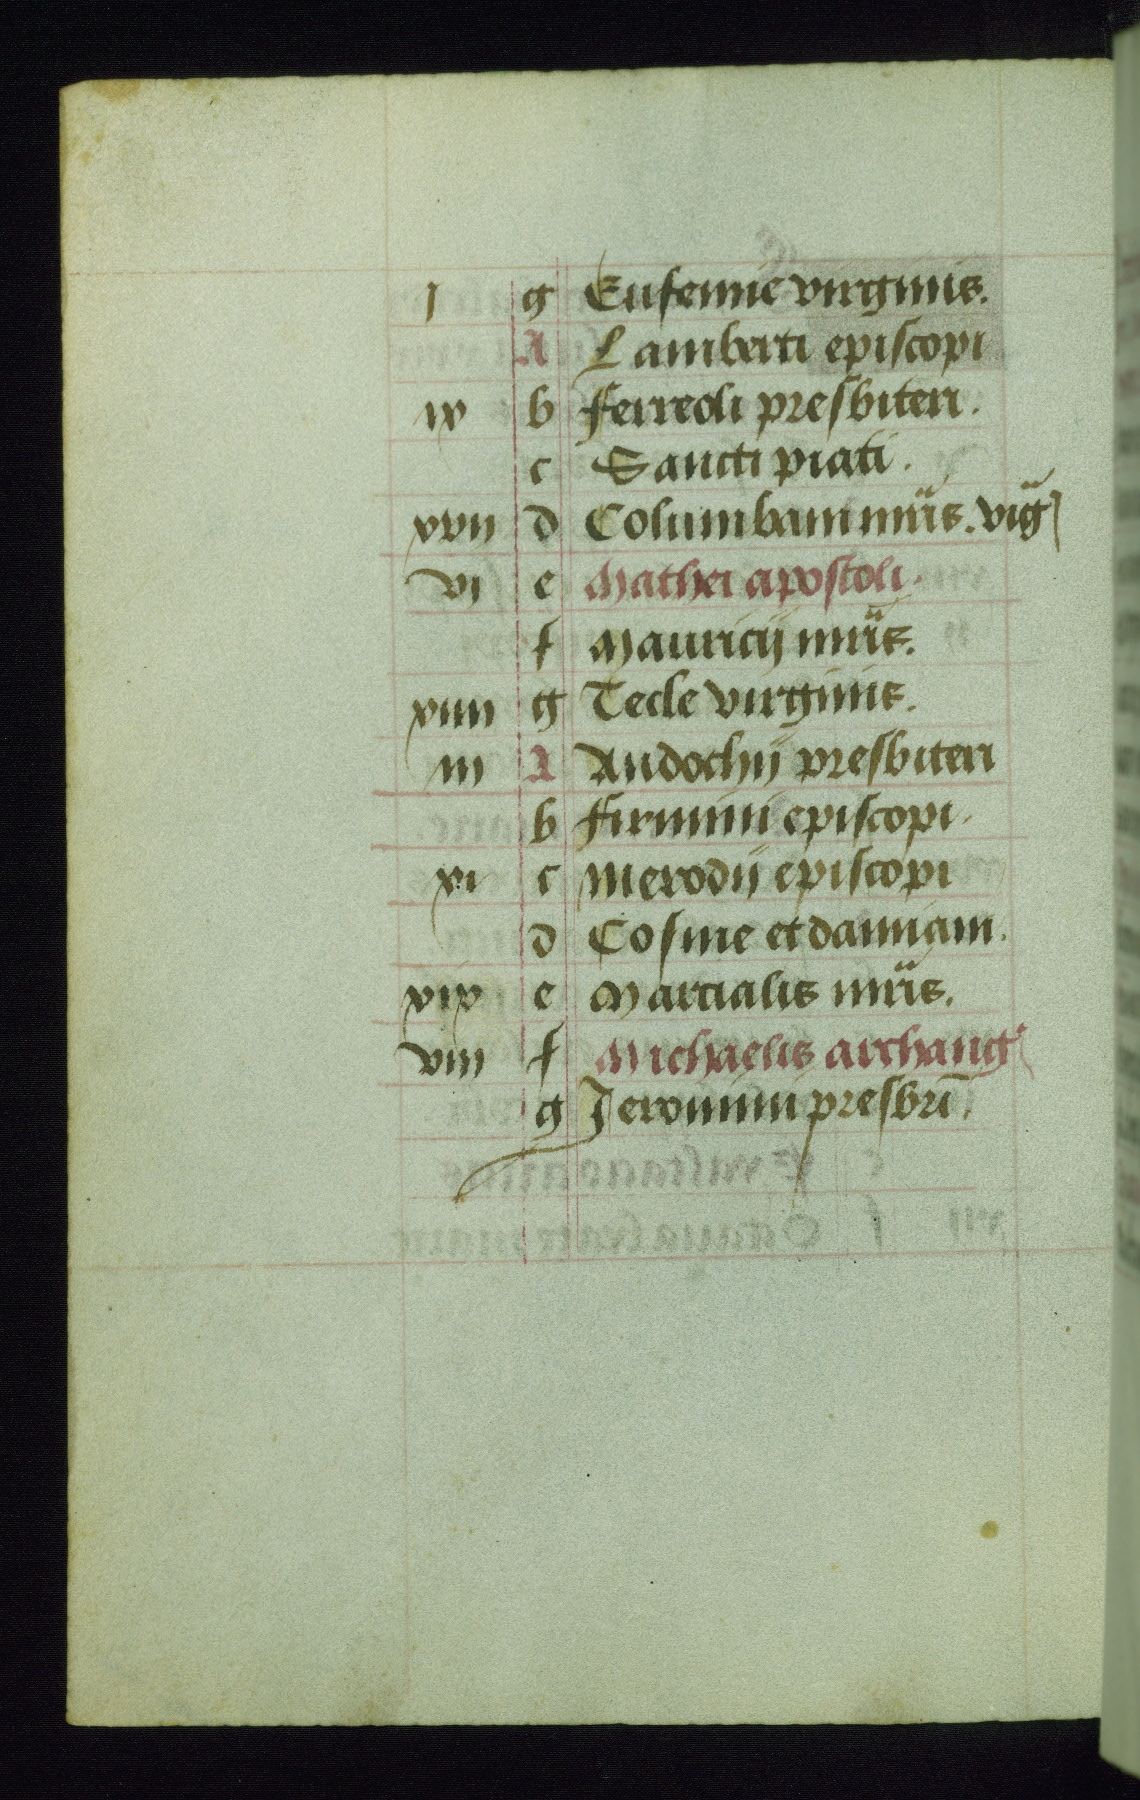 j g Eufemie virginis.
A Lamberti episcopi
ix b Ferreoli presbiteri.
c Sancti piati.
xvii d Columbani mr̃is. vig̃
vi e Mathei apostoli.
f Mauricij mr̃is.
xiiii g Tecle virginis.
iii A Andochij presbiteri
b Firmini episcopi.
xi c Merodij episcopi
d Cosme et damiani.
xix e Marcialis mr̃is.
viii f Michaelis archang̛
g Jeronimi presbr̄i.